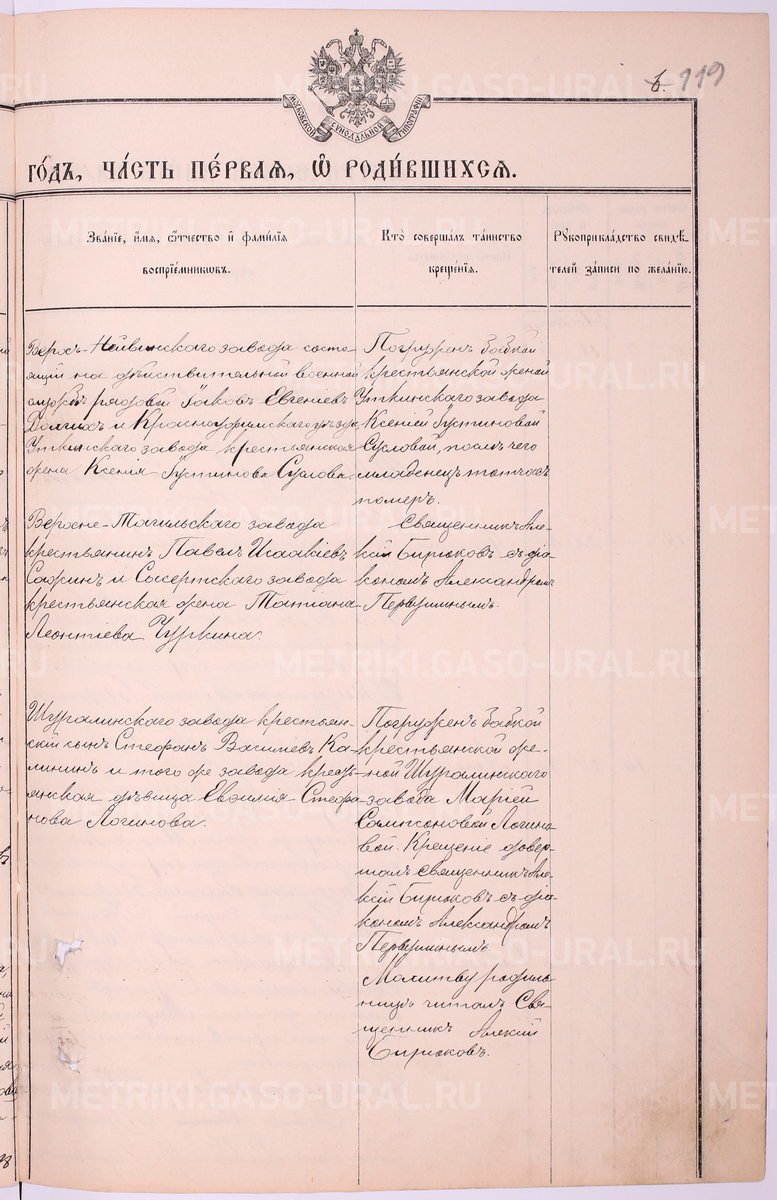 6. 119
МОСКОВСКОЙ СѴНОДАЛЬНОЙ ТИПОГРАФІИ
ГО́ДЪ, ЧА́СТЬ ПЕ́РВАЯ, Ѿ РОДИ́ВШИХСЯ.
Зва́нїе, и҆́мя, ѻ҆́тчество и҆ фами́лїя
воспрїе́мниковъ.
Кто̀ соверша́лъ та́инство
креще́нїя.
Рꙋкоприкла́дство свидѣ́-
телей за́писи по жела́нїю.
Верхъ-Нейвинскаго завода состо-
ящій на дѣйствительной военной
службѣ рядовой Іаковъ Евгеніевъ
Долгихъ и Красноуфимскаго уѣзда,
Уткинскаго завода крестьянская
жена Ксенія Іустинова Суслова.
Погруженъ бабкой
крестьянской женой
Уткинскаго завода
Ксеніей Іустиновой
Сусловой, послѣ чего
младенецъ тотчасъ
померъ.
Верхне-Тагильскаго завода
крестьянинъ Павелъ Исаакіевъ
и Сысертскаго завода
крестьянская жена Татіана
Леонтіева Чуркина.
Священникъ Але-
ксій Бирюковъ съ діа-
кономъ Александромъ
Первушинымъ.
Шуралинскаго завода крестьян-
скій сынъ Стефанъ Василіевъ Ка-
лининъ и того же завода кресть-
янская дѣвица Евѳимія Стефа-
нова Логинова.
Погруженъ бабкой
крестьянской же-
ной Шуралинскаго
завода Маріей
Сампсоновой Логино-
вой. Крещеніе довер-
шалъ священникъ Але-
ксій Бирюковъ съ діа-
кономъ Александромъ
Первушинымъ.
Молитву родиль-
ницѣ читалъ Свя-
щенникъ Алексій
Бирюковъ.
METRIKI.GASO-URAL.RU